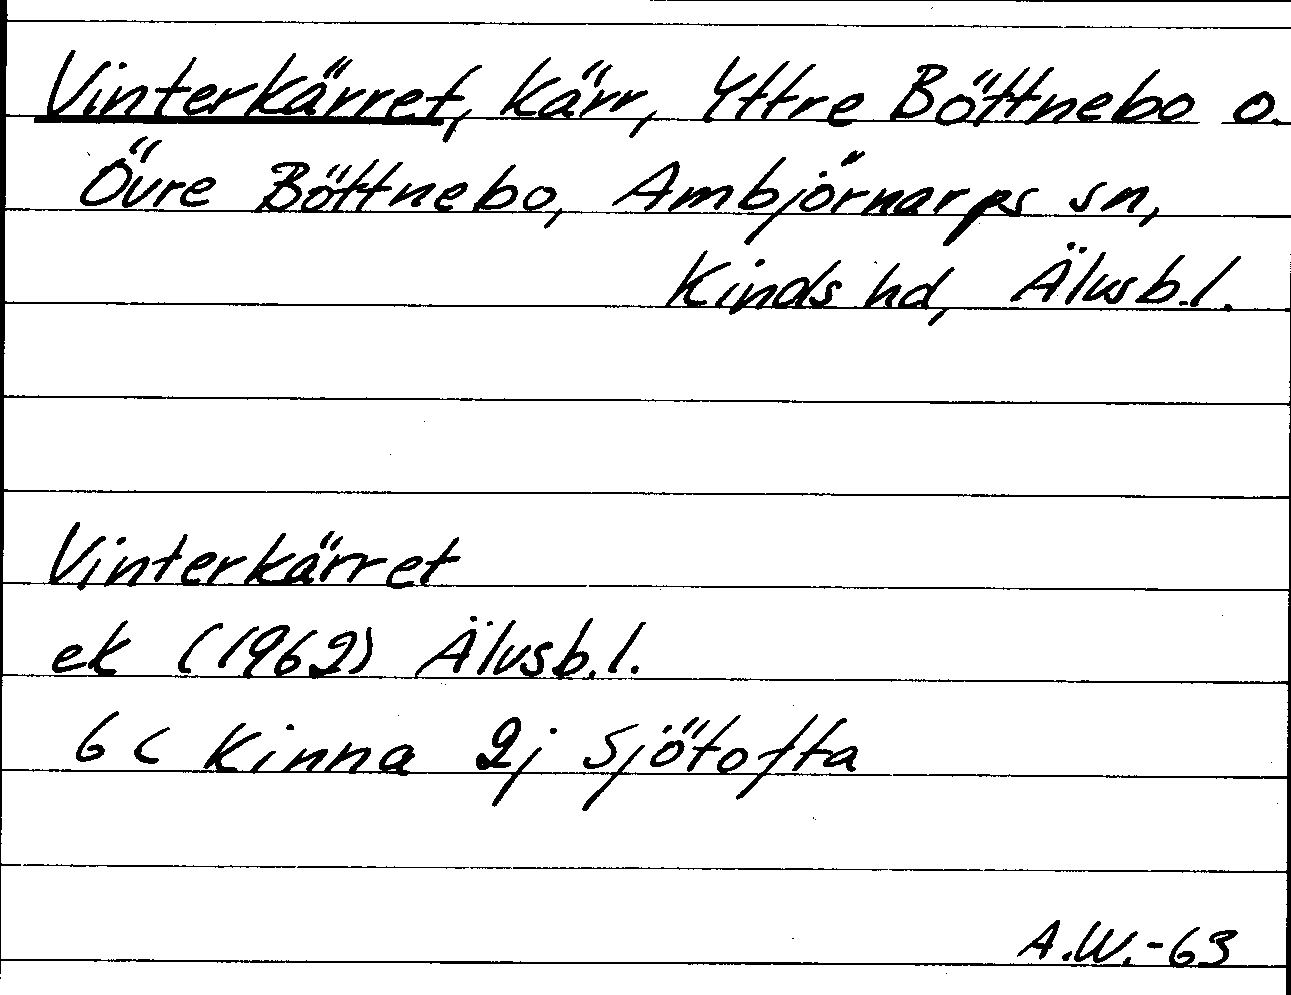 Vinterkärret, kärr, Yttre Böttnebo o.
Övre Böttnebo, Ambjörnarps sn,
Kinds hd, Älvsb.l.
Vinterkärret
ek (1962) Älvsb.l.
6 C Kinna 2j Sjötofta
A.W.-63